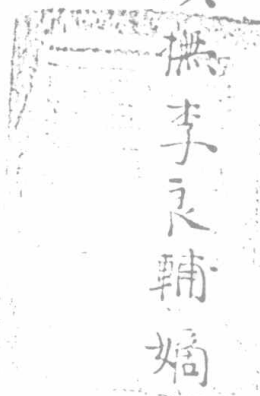 撫李良輔嫡